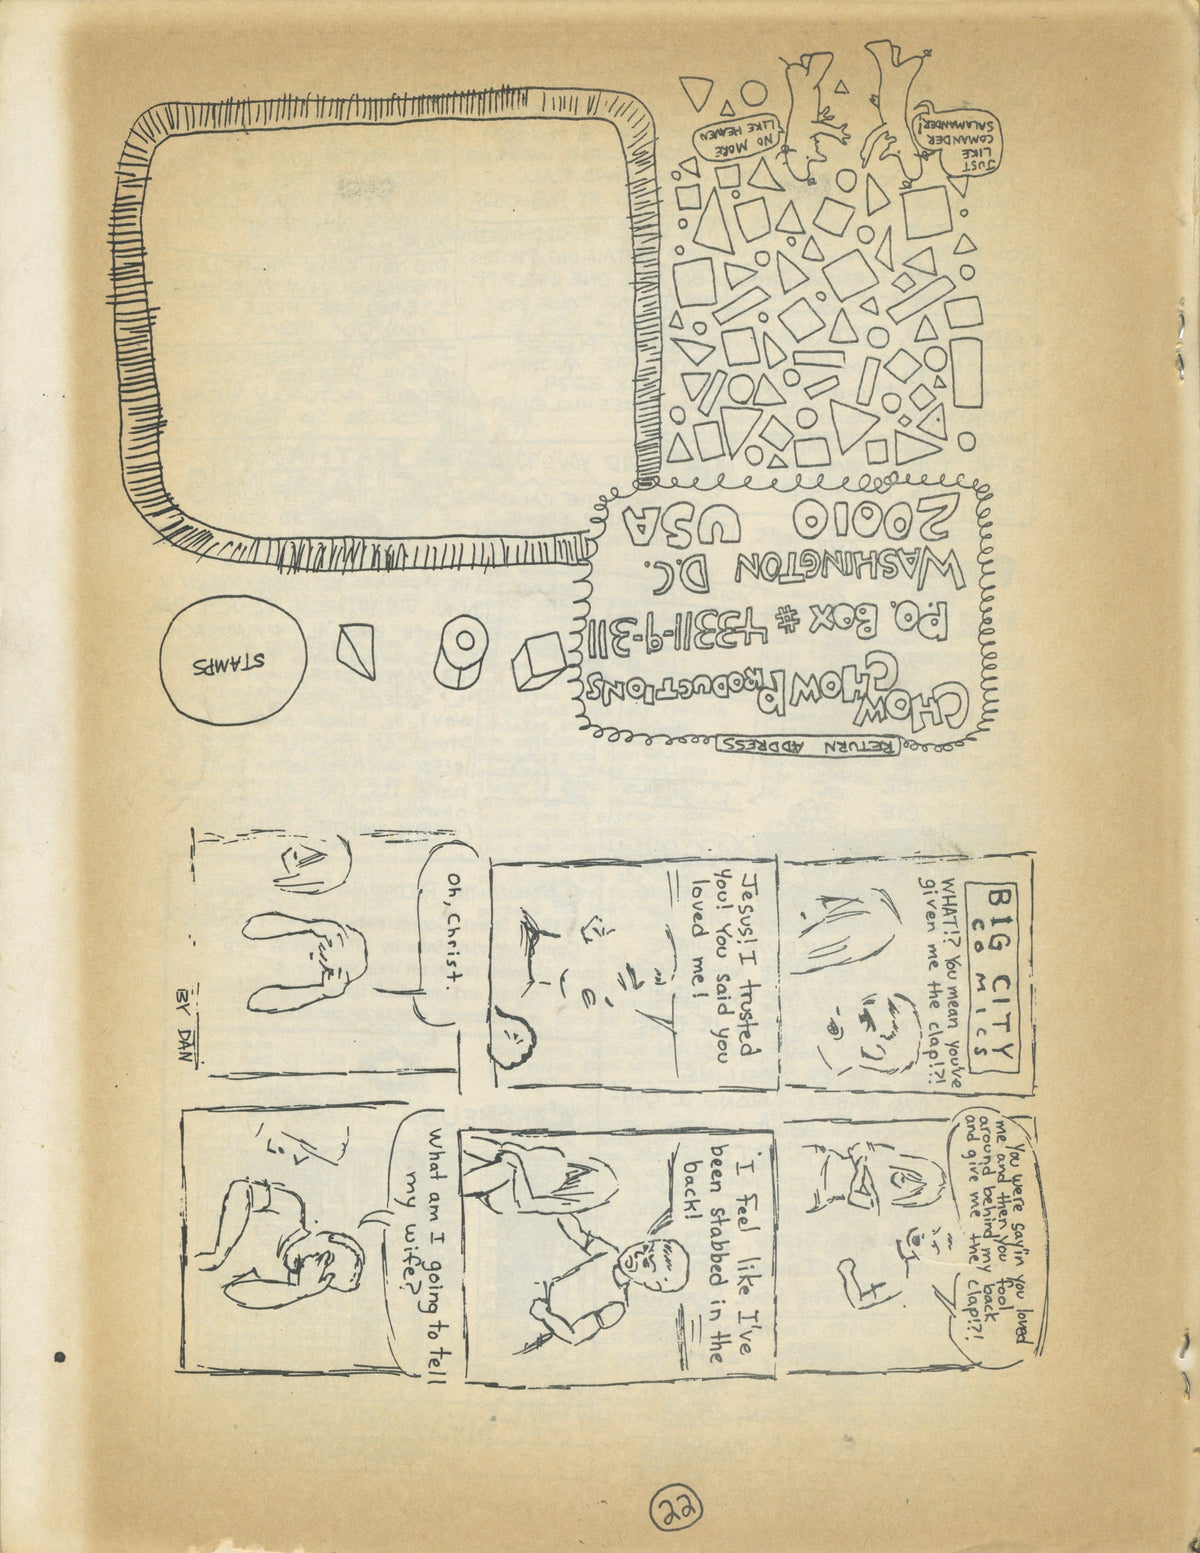 RETURN ADDRESS
CHOW
CHOW PRODUCTIONS
P.O. BOX # 43311-9-311
WASHINGTON D.C.
20010 USA
STAMPS
JUST
LIKE
COMANDER
SALAMANDER!
NO MORE
LIKE HEAVEN
BIG CITY
COMICS
WHAT!? You mean you've
given me the clap!?!
You were sayin you loved
me and then you fool
around behind my back
and give me the clap!?!
Jesus! I trusted
you! You said you
loved me!
I feel like I've
been stabbed in the
back!
Oh, Christ.
What am I going to tell
my wife?
BY DAN
22